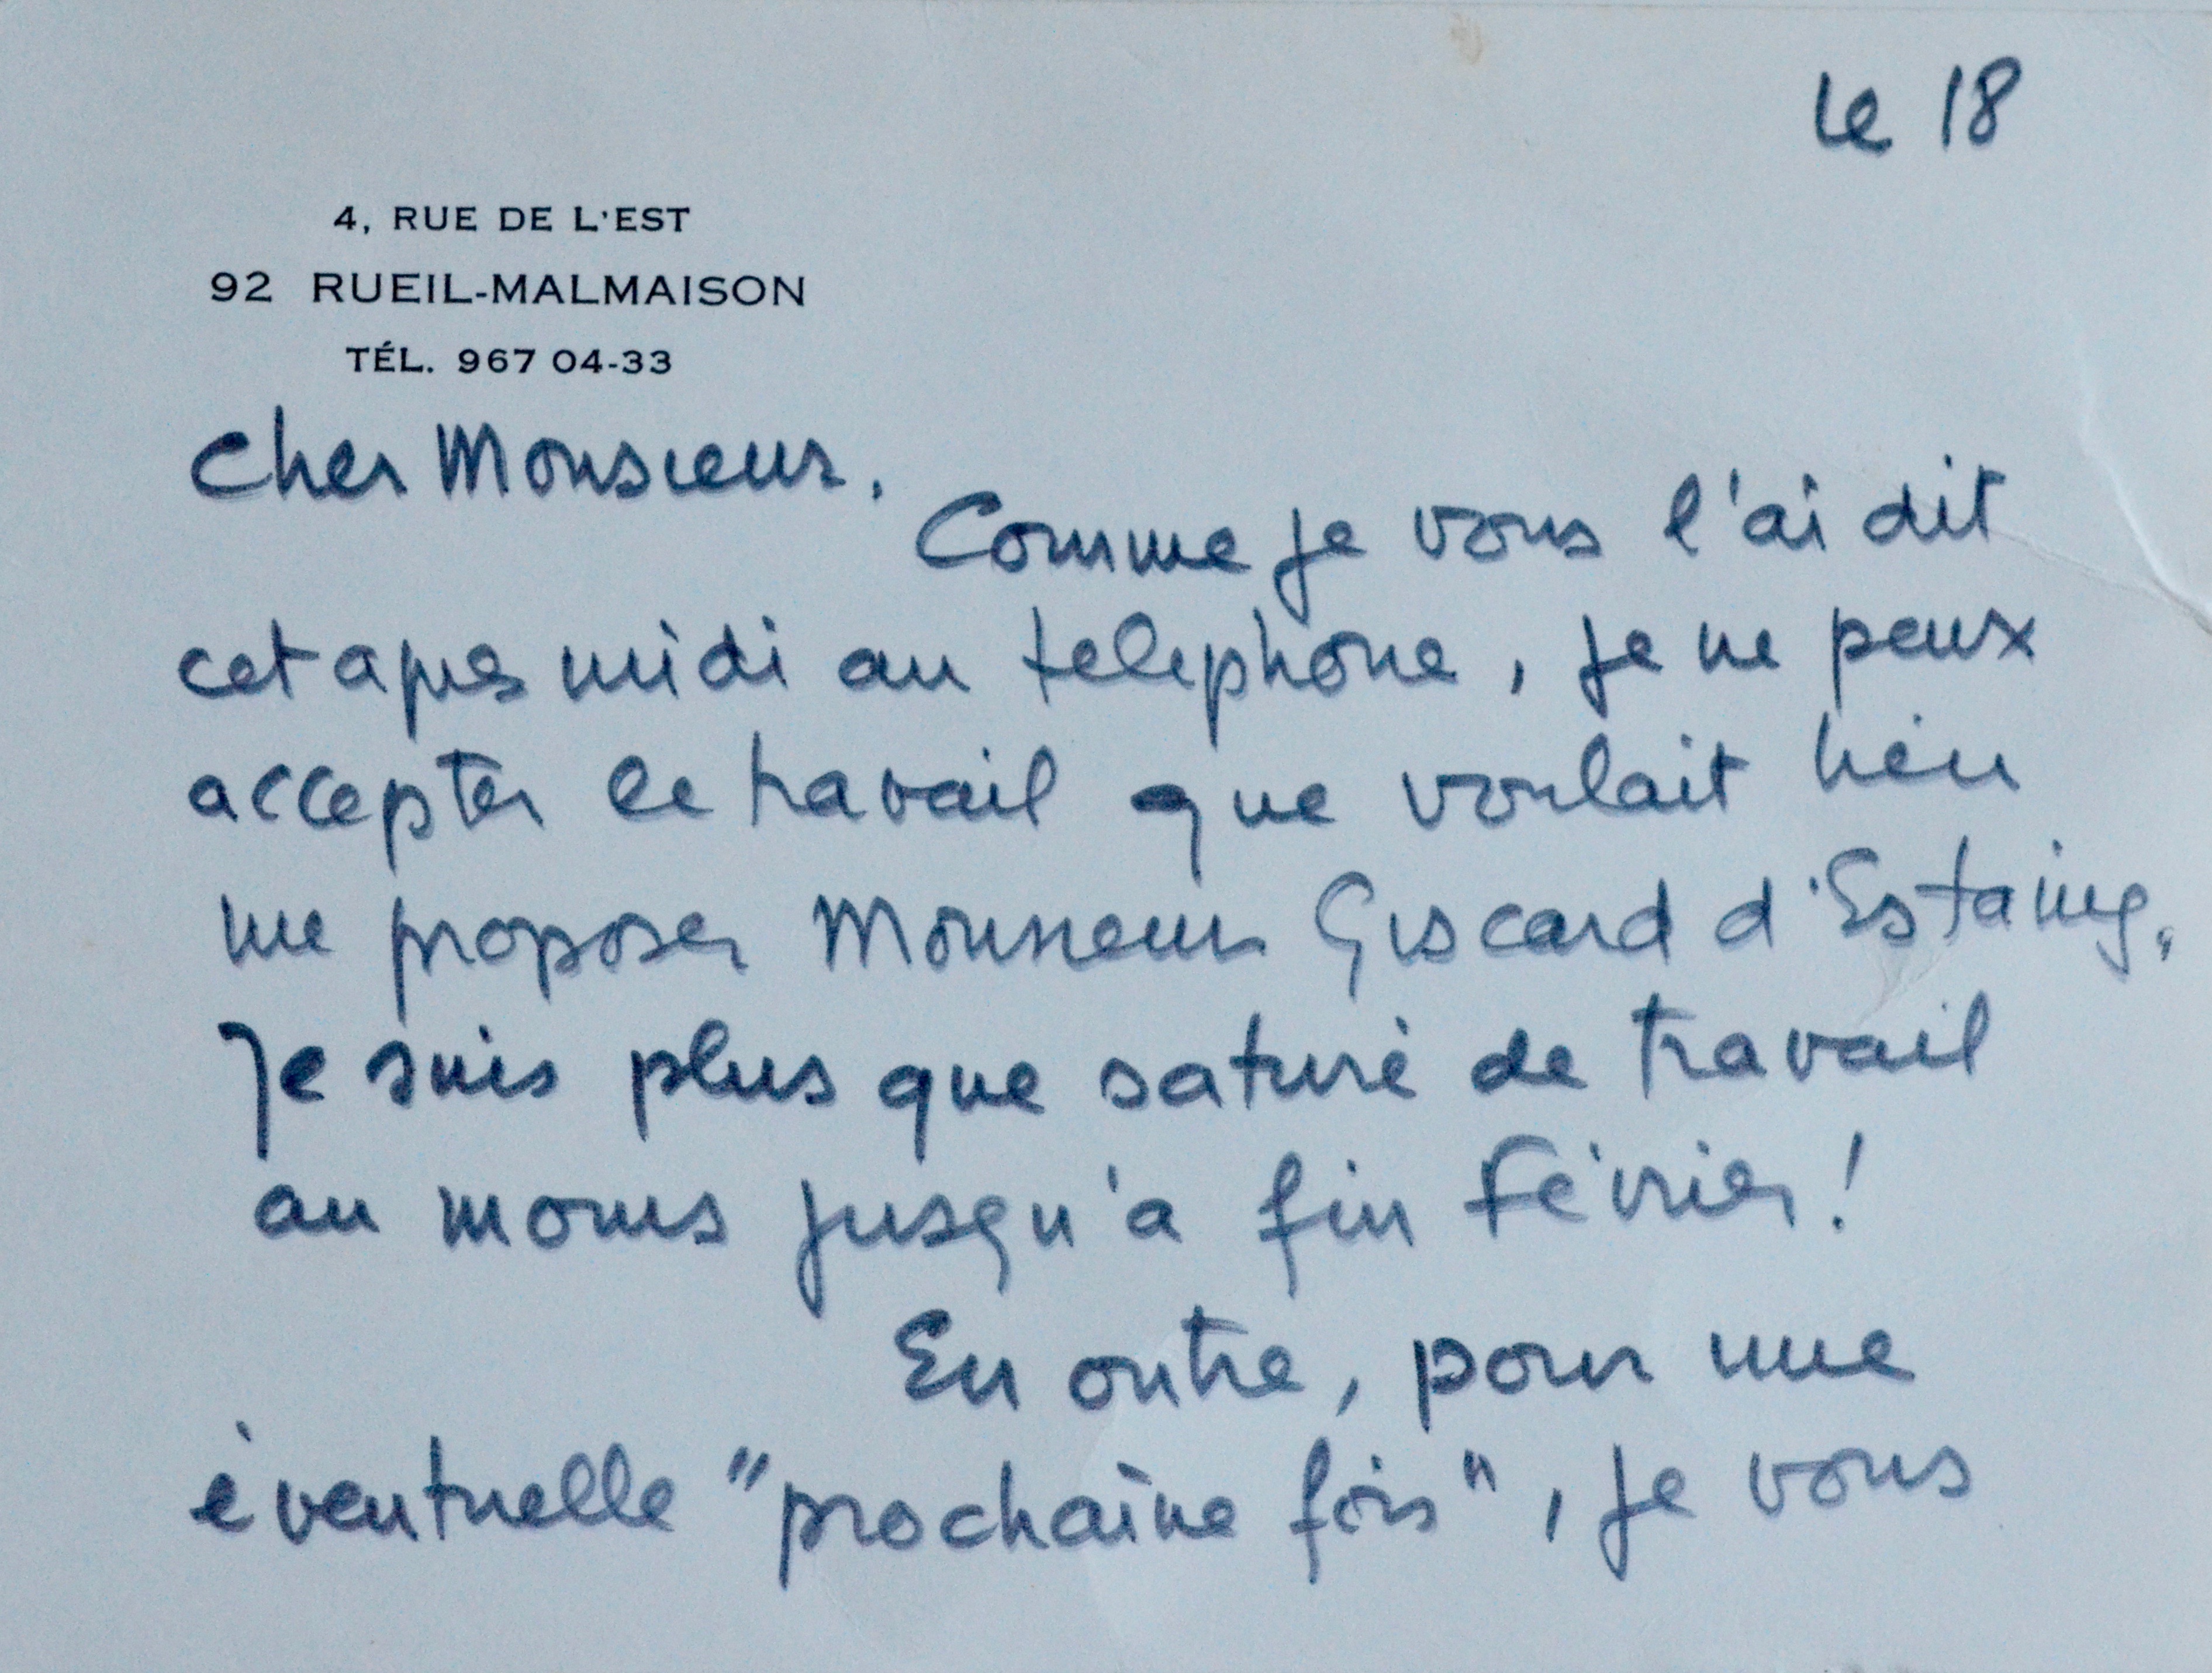 le 18
4, RUE DE L'EST
92 RUEIL-MALMAISON
TÉL. 967 04-33
Cher Monsieur.
Comme je vous l'ai dit
cet apres midi au telephone, je ne peux
accepter le travail que voulait bien
me proposer Monsieur Giscard d'Estaing,
Je suis plus que saturé de travail
au moins jusqu'a fin Février !
En outre, pour une
éventuelle "prochaine fois", je vous